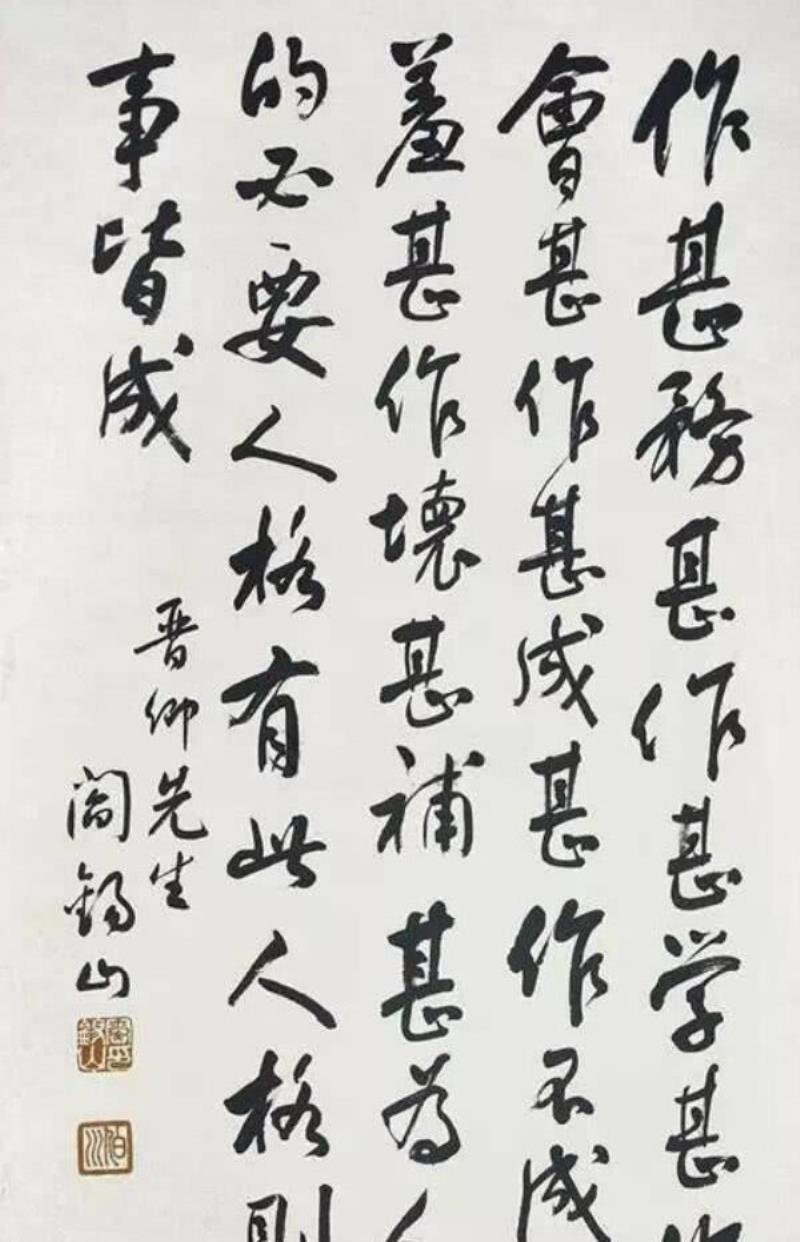 作甚務甚作甚学甚作
會甚作甚成甚作不成
羞甚作壞甚補甚為人
的必要人格有此人格則
事皆成
晋仰先生
閻錫山
伯川